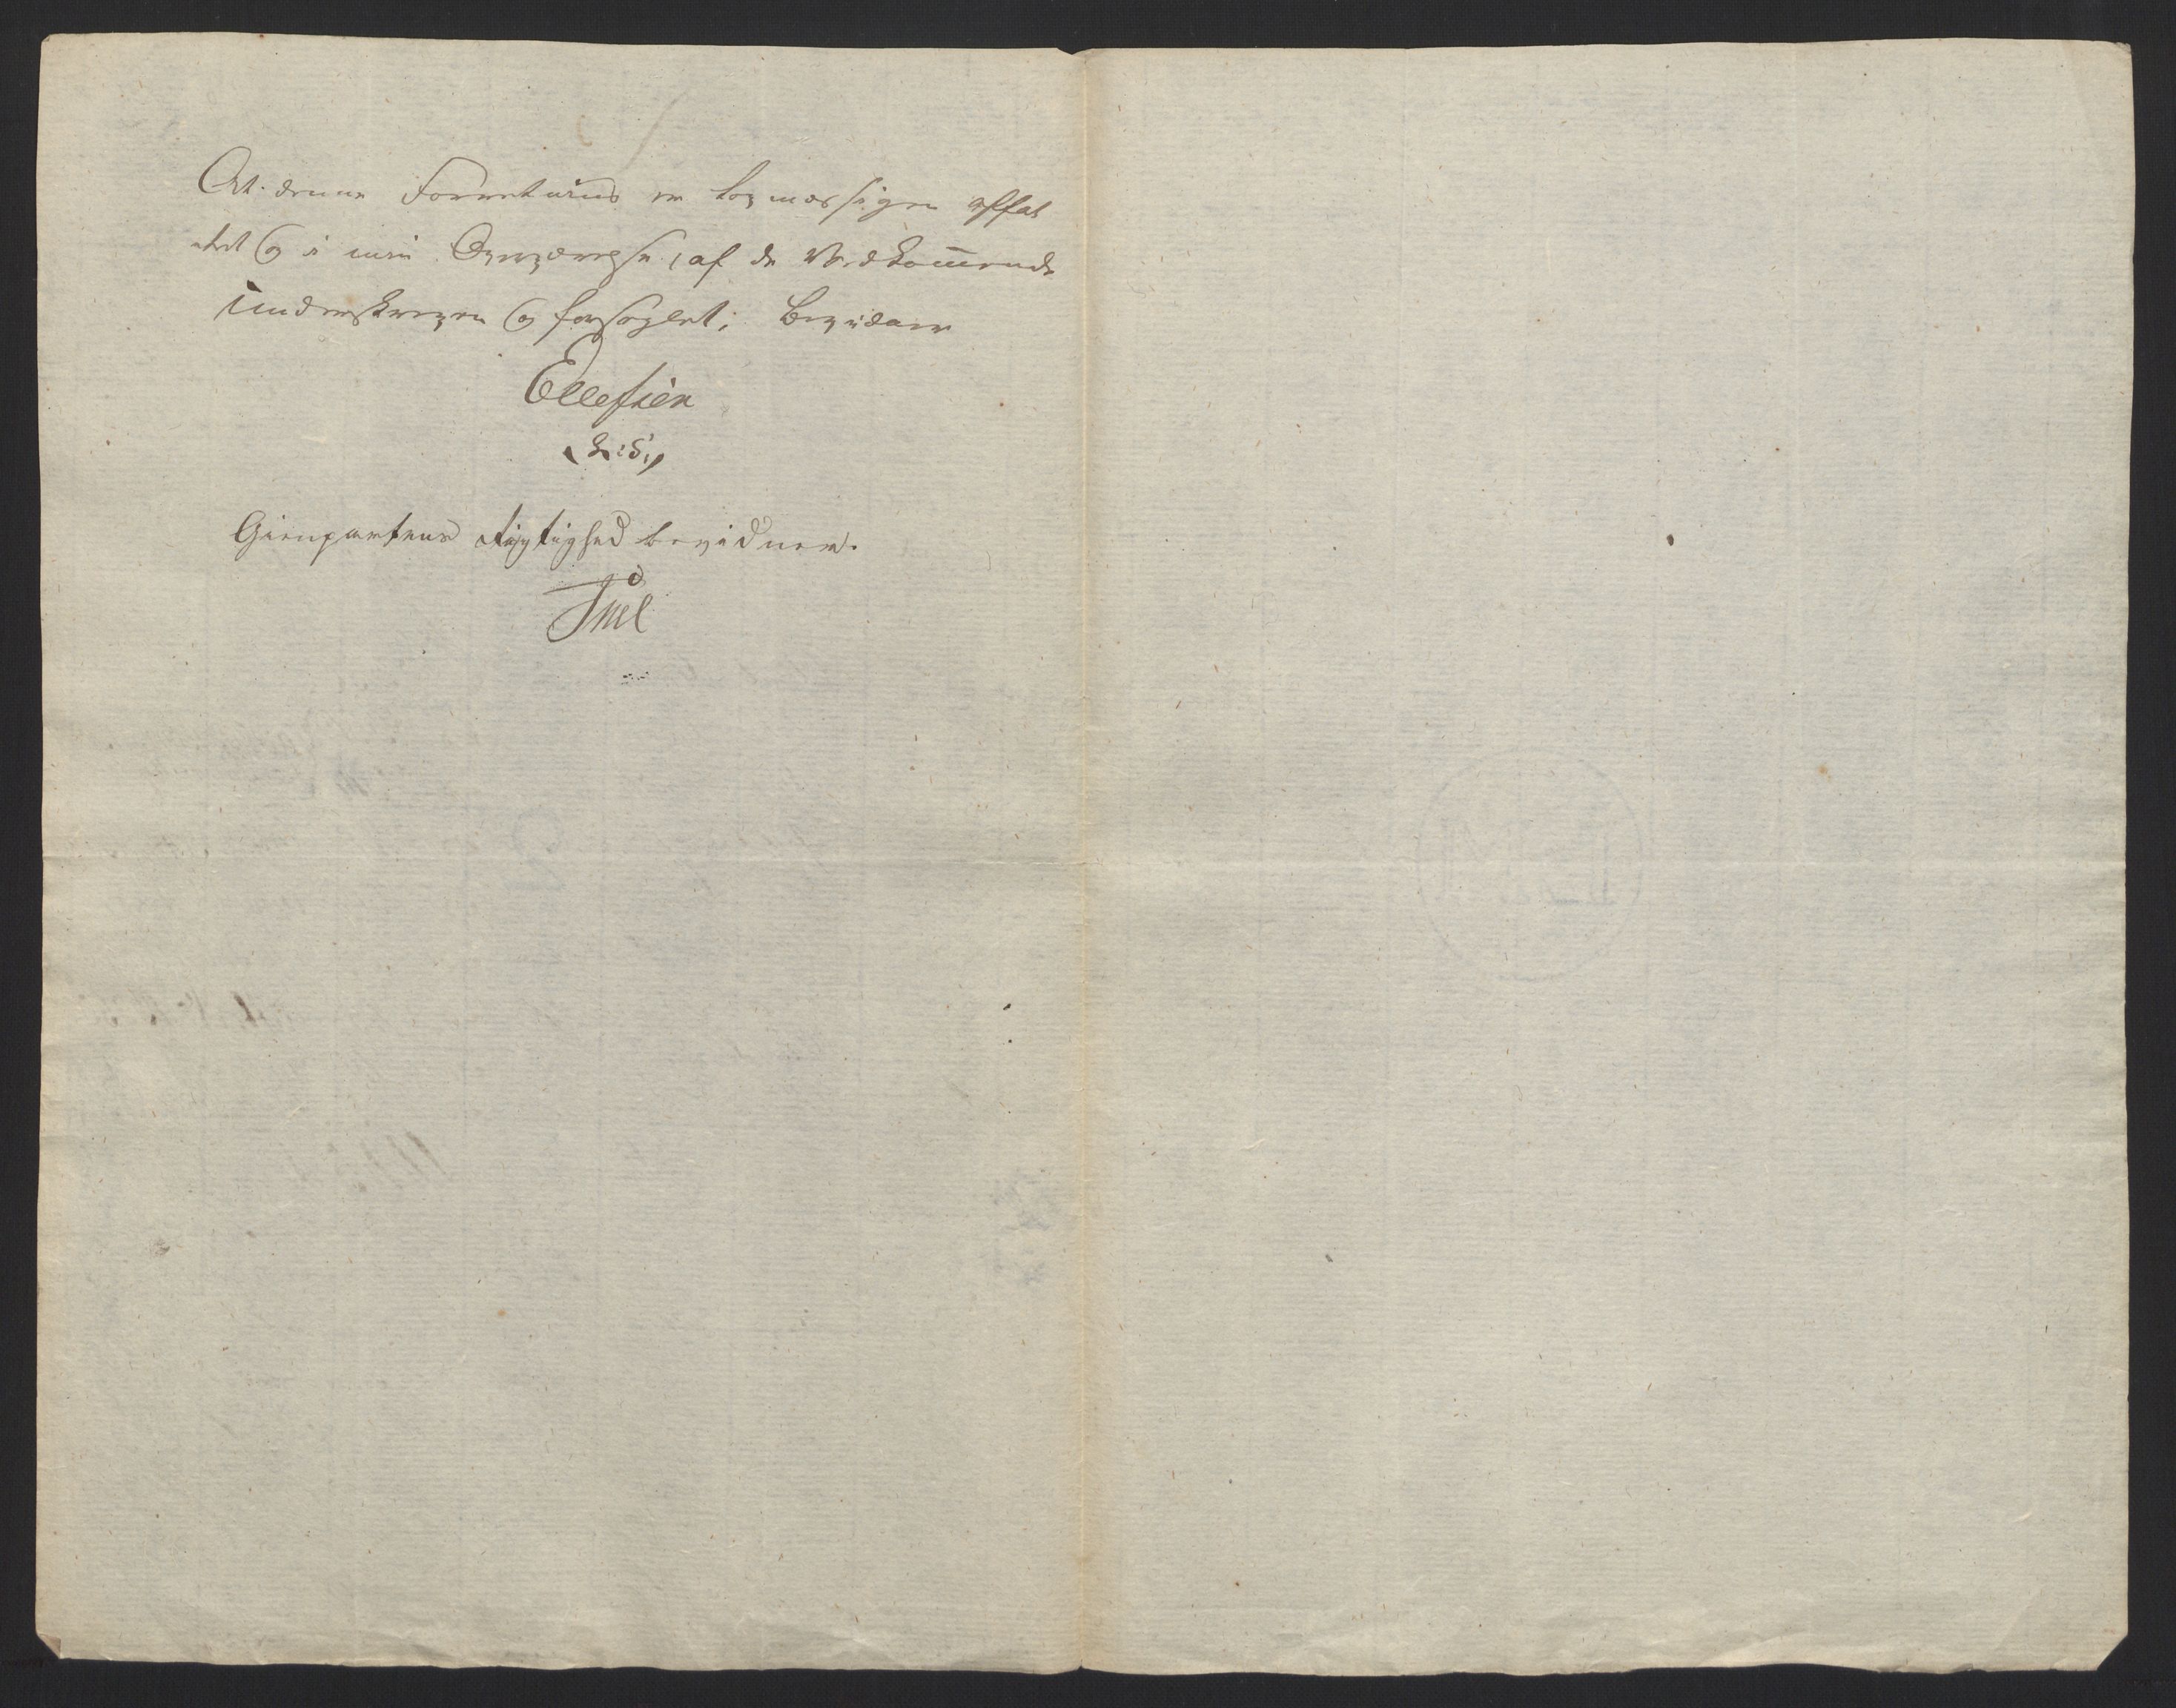 At denne Forretning er lovmæssigen affat
tet og i min Overværelse, af de Vedkom̅ende
underskreven og forseglet; bevidner
Ellefsen
(L:S:)
Gienpartens Rigtighed bevidner.
Juel